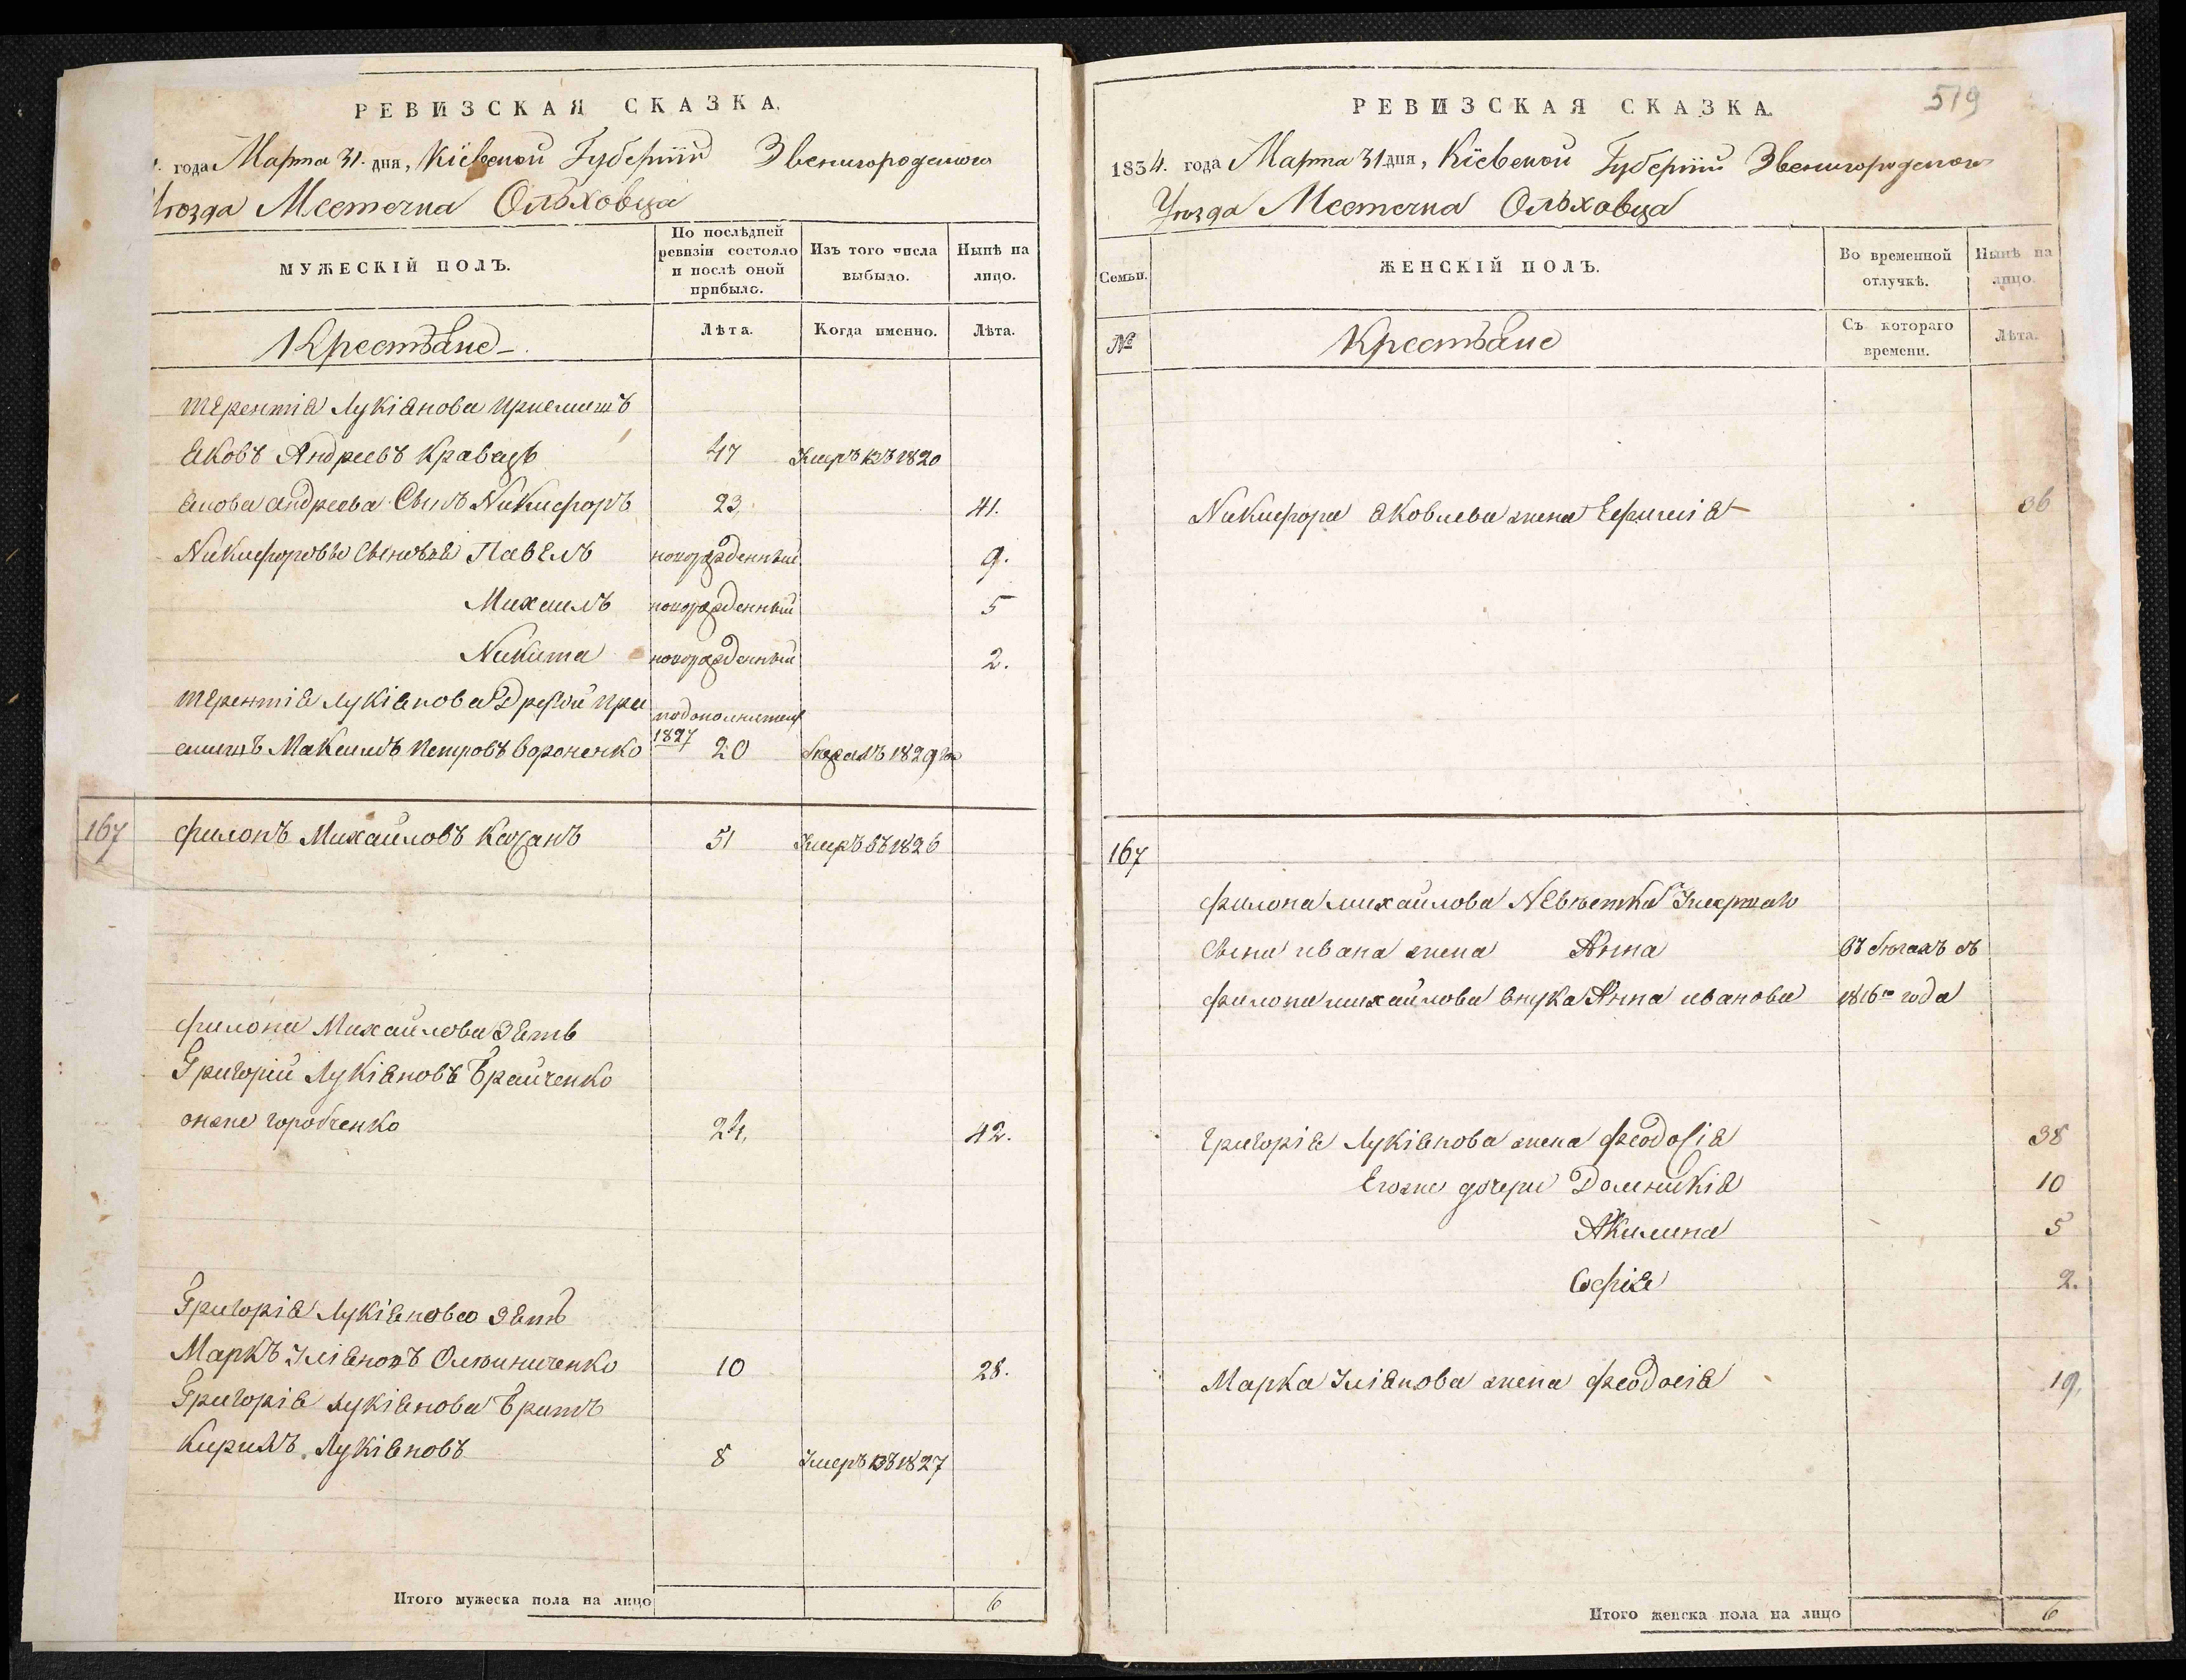 РЕВИЗСКАЯ СКАЗКА.
года Марта 31. дня, Кіевской Губерніи Звенигородского
Уѣзда Местечка Ольховца
МУЖЕСКІЙ ПОЛЪ.
По послѣдней ревизіи состояло и послѣ оной прибыло.
Изъ того числа выбыло.
Нынѣ на лицо.
Крестьяне
Лѣта.
Когда именно.
Лѣта.
Терентія Лукіянова приемишъ
Яковъ Андреевъ Кравецъ 47 Умеръ въ 1820
Якова Андреева Сынъ Никифоръ 23. 41.
Никифоровы Сыновья Павелъ новорожденный 9.
Михаилъ новорожденный 5
Никита новорожденный 2.
Терентія Лукіянова Другой при
емишъ Максимъ Петровъ Вороненко 1827 20 1829
167 Филонъ Михайловъ Казанъ 51 Умеръ въ 1826
Филона Михайлова Зять
Григорій Лукіяновъ Брайченко
онже Горобченко 24. 42.
Григорія Лукіянова Зять
Маркъ Уліяновъ Олійниченко 10 28.
Григорія Лукіянова Братъ
Кирилъ Лукіяновъ 8 Умеръ въ 1827
Итого мужеска пола на лицо 6
РЕВИЗСКАЯ СКАЗКА.
519
1834. года Марта 31 дня, Кіевской Губерніи Звенигородского
Уѣзда Местечка Ольховца
Семьи.
ЖЕНСКІЙ ПОЛЪ.
Во временной отлучкѣ.
Нынѣ на лицо.
№
Крестьяне
Съ котораго времени.
Лѣта.
Никифора Яковлева жена Ефимія 36
167
Филона Михайлова Невѣстка Умершаго
Сына Ивана жена Анна въ бѣгахъ съ
Филона Михайлова внука Анна Иванова 1816го года
Григорія Лукіянова жена Феодосія 38
Егоже дочери Домникія 10
Акилина 5
Софія 2.
Марка Уліянова жена Феодосія 19.
Итого женска пола на лицо 6